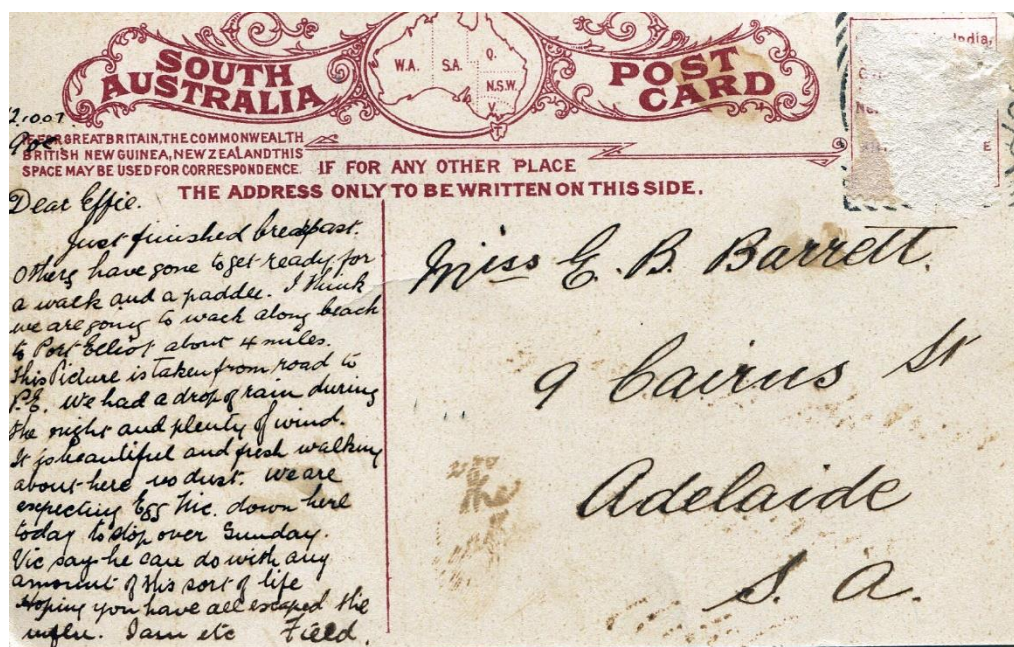 SOUTH
AUSTRALIA
W.A.
S.A.
Q.
N.S.W.
V.
T.
POST
CARD
India,
E
FOR GREAT BRITAIN, THE COMMONWEALTH
BRITISH NEW GUINEA, NEW ZEALAND THIS
SPACE MAY BE USED FOR CORRESPONDENCE.
IF FOR ANY OTHER PLACE
THE ADDRESS ONLY TO BE WRITTEN ON THIS SIDE.
Dear Effie.
Just finished breakfast.
Others have gone to get ready for
a walk and a paddle. I think
we are going to walk along beach
to Port Elliot about 4 miles.
This Picture is taken from road to
P.E. We had a drop of rain during
the night and plenty of wind.
It is beautiful and fresh walking
about here no dust. We are
expecting Egg down here
today to stop over Sunday.
Vic say he can do with any
amount of this sort of life
Hoping you have all escaped the
influ. I am etc Field.
Miss E. B. Barrett.
9 Cairns St
Adelaide
S. A.
the